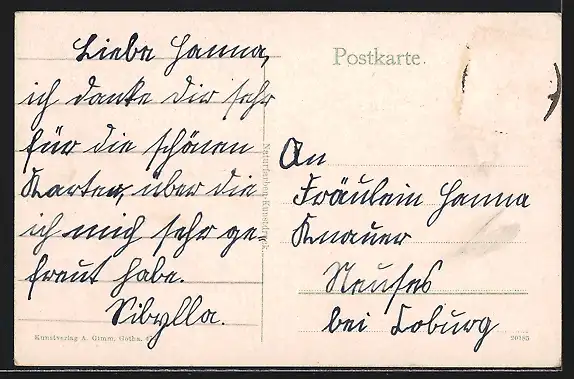 Liebe Hanna,
ich danke dir sehr
für die schönen
Karten, über die
ich mich sehr ge-
freut habe.
Sibylla.
Kunstverlag A. Gimm, Gotha.
Naturfarben-Kunstdruck.
Postkarte
An
Fräulein Hanna
Knauer
Neuses
bei Coburg
20185